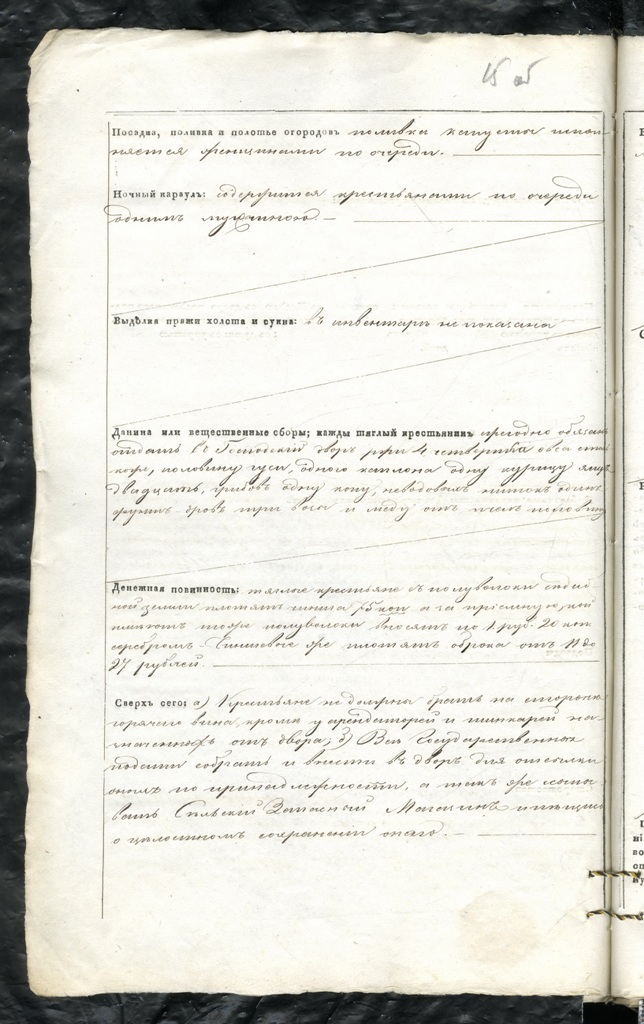 15 об
Посадка, поливка и полотье огородовъ поливка капусты испол-
няется женщинами по очереди.
Ночный караулъ: содержится крестьянами по очереди
однимъ мужчиною. –
Выдѣлка пряжи холста и сукна: въ инвентарѣ не показана
Данина или вещественные сборы; кажды тяглый крестьянинъ ежегодно обязанъ
отдать въ Господскій дворъ ржи 4 четверика овса
половину гуся, одного каплона одну курицу яицъ
двадцать, грибовъ одну копу, нитокъ одинъ
фунтъ дровъ три воза и меду отъ пчелъ половину
Денежная повинность: тяглые крестьяне съ полуволоки
земли платятъ чинша 75 коп а за
полуволоки вносятъ по 1 руб. 20 коп
серебромъ – Чиншевые же платятъ оброка отъ 11 до
27 рублей.
Сверхъ сего: а) Крестьяне не должны брать на сторонѣ
горячаго вина, кромѣ у арендаторей и шинкарей на-
значенныхъ отъ двора; Всѣ Государственные
подати собрать и внести въ дворъ для отсылки
оныхъ по принадлежности, а такъ же
Сельскій Запасный Магазинъ
о цѣлостномъ сохраненіи онаго. –